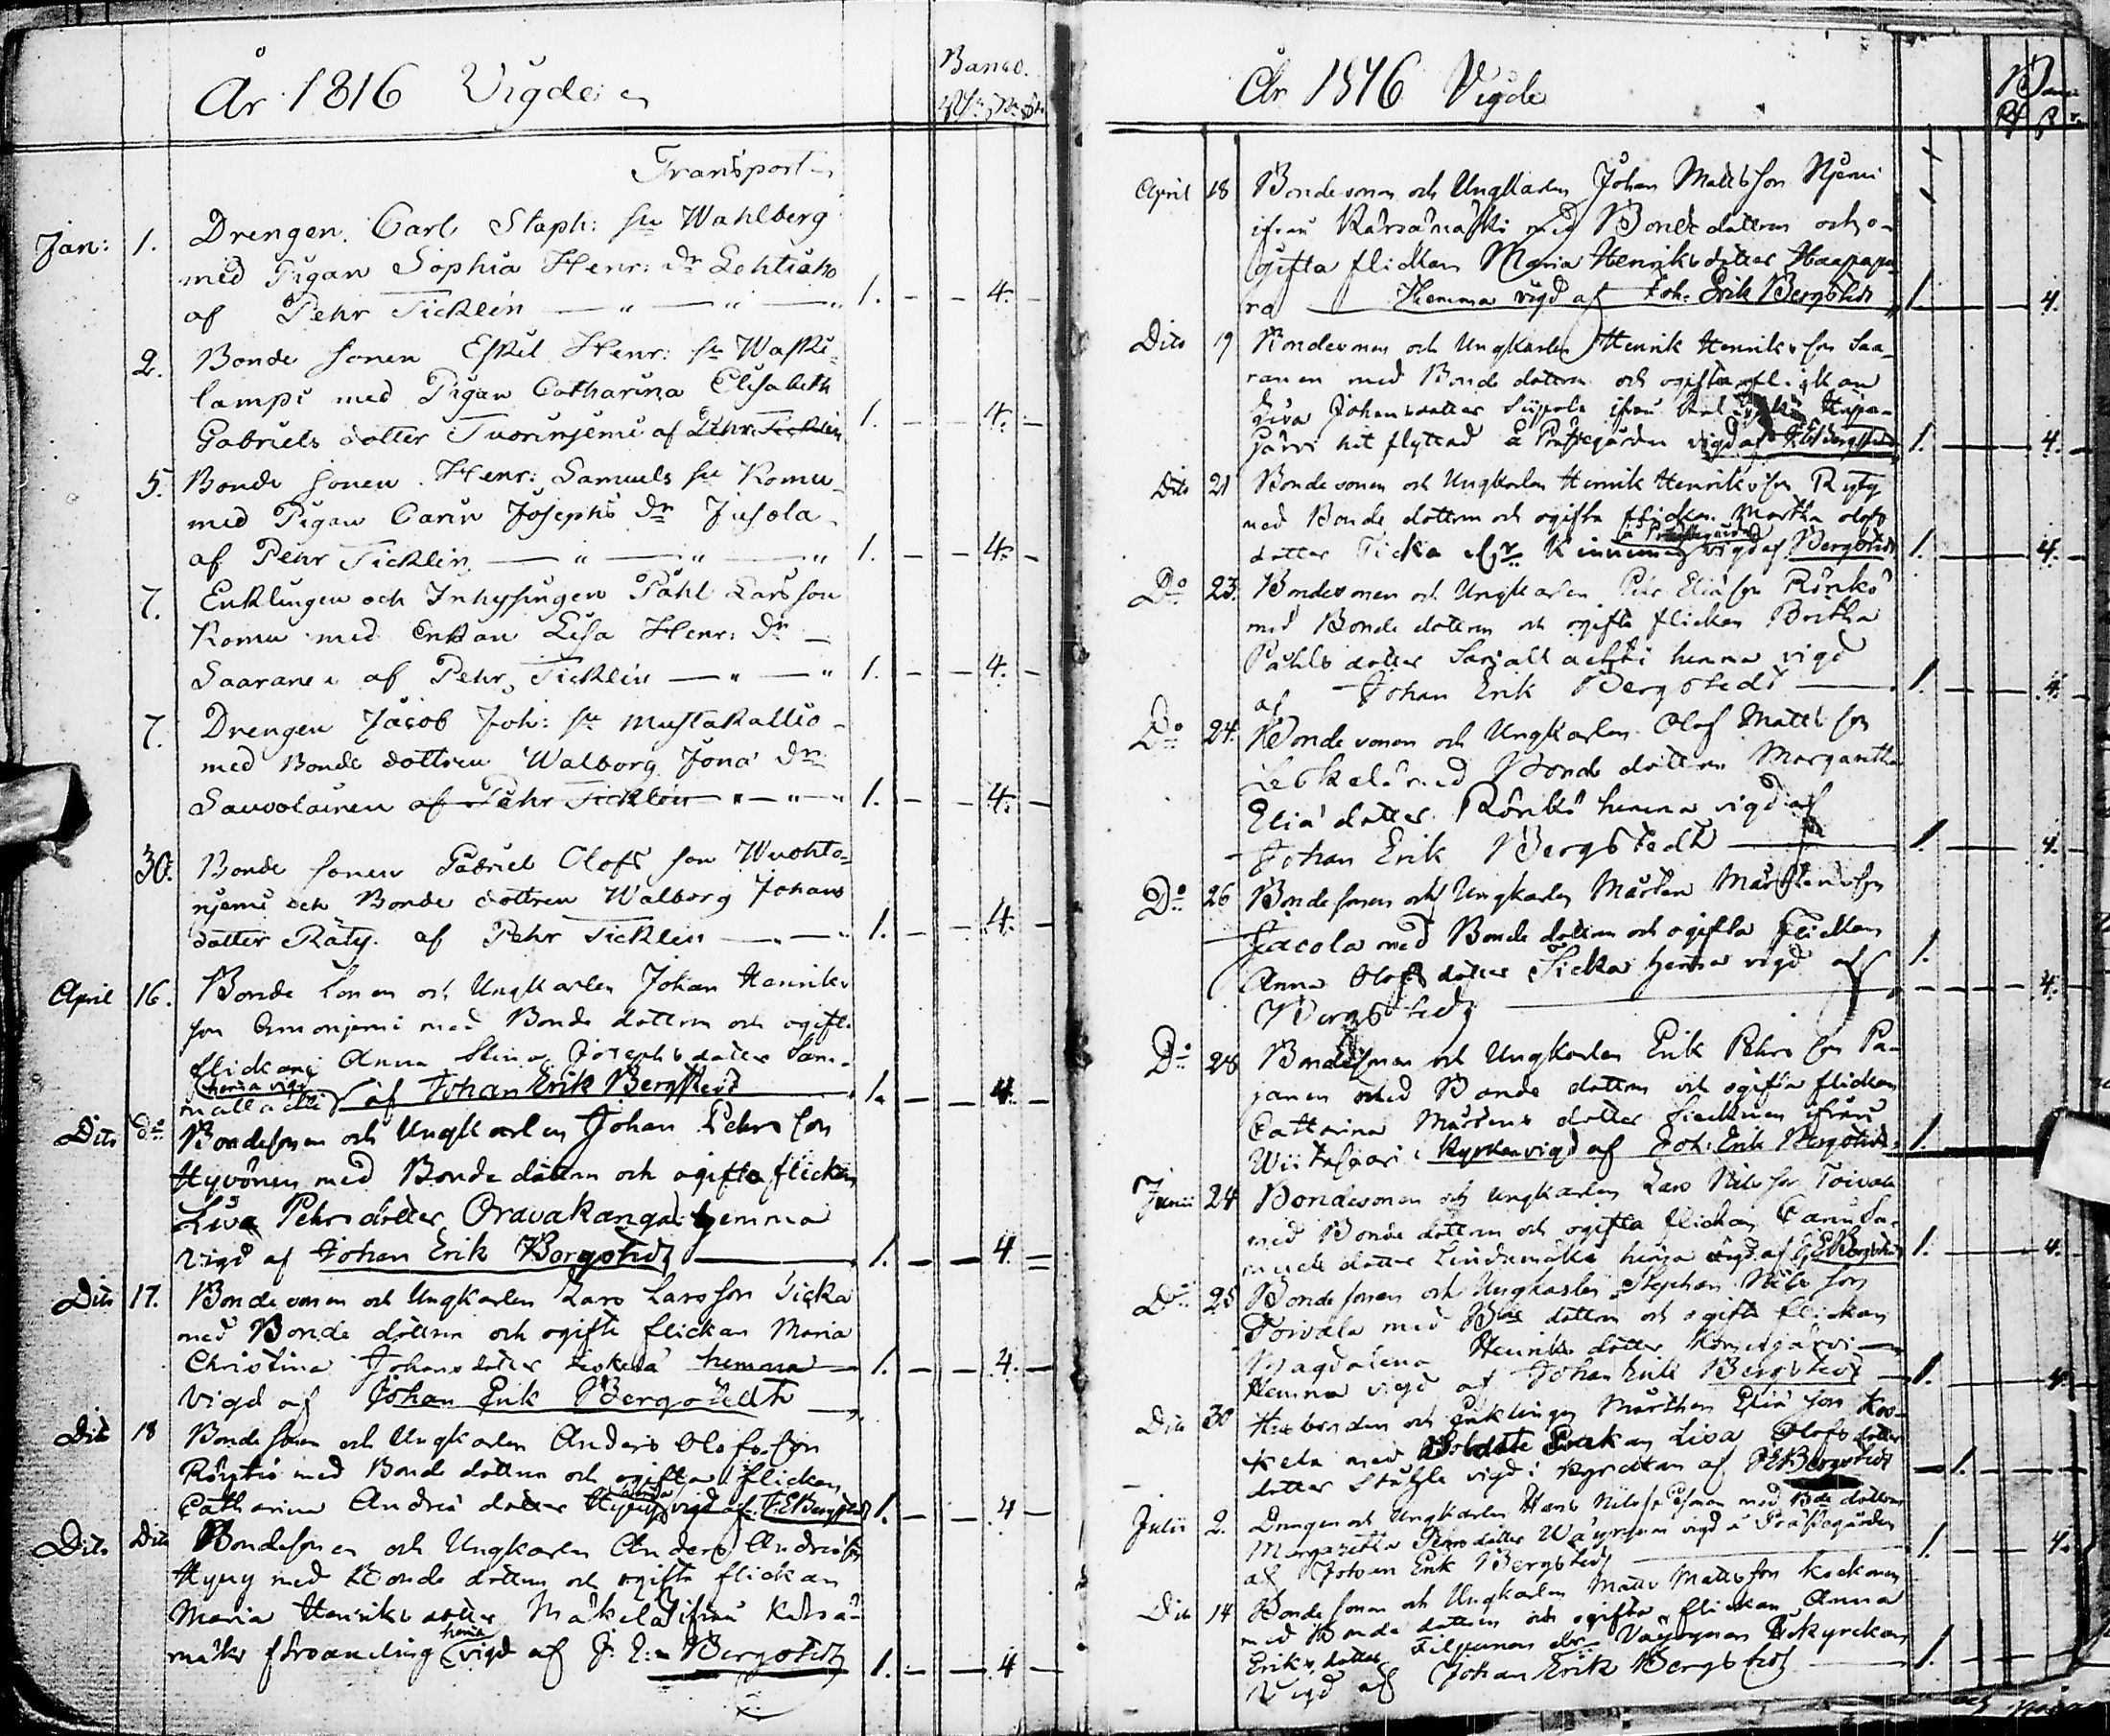 År 1816 Vigde
Banco.
Transport
Jan: 1. Drengen Carl Staph: sn Wahlberg
med Pigan Sophia Henr: dr Lehtiaho
af Pehr Ticklén — " — " — " 1. – – 4. –
2. Bonde sonen Eskil Henr: sn Waski-
lampi med Pigan Catharina Elisabeth
Gabriels dotter Tuorinjemi af Pehr Ticklén 1. 4. –
5. Bonde sonen Henr: Samuels sn Komu
med Pigan Carin Josephs dr Jusola
af Pehr Ticklén — " — " — " 1. – – 4. –
7. Enklingen och Inhysingen Påhl Larsson
Komu med Enkan Lisa Henr: dr –
Saaranen af Pehr Ticklén — " — " 1. – – 4. –
7. Drengen Jacob Joh: sn Mustakallio
med Bonde dottren Walborg Jona dr
Sauvolainen af Pehr Ticklén " — " — " 1. – – 4. –
30. Bonde sonen Gabriel Olofs son Wuohto-
njemi och Bonde dottren Walborg Johans
dotter Räty. af Pehr Ticklén — " — " 1. – – 4. –
April 16. Bonde sonen och Ungkarlen Johan Henriks
son njemi med Bonde dottren och ogifte
flickan Anna Stina Josephs dotter
hema vigd
af Johan Erik Bergstedt 1. – – 4. –
Dito do Bondesonen och Ungkarlen Johan Pehrs son
Hyvönen med Bonde dottren och ogifta flickan
Lisa Pehrs dotter Oravakangas hemma
vigd af Johan Erik Bergstedt 1. – – 4. –
Dito 17. Bondesonen och Ungkarlen Lars Larsson Ticka
med Bonde dottren och ogifte flickan Maria
Christina Johans dotter Leskelä hemma 1. – – 4. –
vigd af Johan Erik Bergstedt
Dito 18 Bonde sonen och Ungkarlen Anders Olofs son
med Bonde dottren och ogifta flickan
hema
Catharina Andrs dotter Hyyry vigd af J:E Bergstedt 1. – – 4 –
Dito Dito Bondesonen och Ungkarlen Anders Andrs sn
Hyyry med Bonde dottren och ogifte flickan
Maria Henriks dotter Mäkelä ifrån Kärsä-
hema
mäki församling vigd af J: E: Bergstedt 1. – – 4 –
År 1816 Vigde
April 18 Bondesonen och Ungkarlen Johan Mattsson Njemi
ifrån Kärsämäki med Bonde dottren och o-
gifta flickan Maria Henriks dotter Haapapu-
ro Hemma vigd af Joh: Erik Bergstedt 1. 4.
Dito 19 Bondesonen och Ungkarlen Henrik Henriks son Saa-
ranen med Bonde dottren och ogifta flickan
Lisa Johans dotter ifrån Hapa-
järvi hit flyttad å Prästgården vigd af J:E: Bergstedt 1. – – 4. –
Dito 21 Bonde sonen och Ungkarlen Henrik Henriks son Räty
med Bonde dottren och ogifta flickan Martha Olofs
å Prästegården
dotter Ticka elr Kinnunen vigd af Bergstedt 1. – – 4. –
Do 23. Bondesonen och Ungkarlen Pehr Elias son Rönkö
med Bonde dottren och ogifte flickan Britha
Påhls dotter hemma vigd
af Johan Erik Bergstedt 1. 4.
Do 24. Bonde sonen och Ungkarlen Olof Mattsson
Leskelä med Bonde dottren Margaretha
Eliä dotter Rönkö hemma vigd af
Johan Erik Bergstedt 1. – 4.
Do 26 Bonde sonen och Ungkarlen Mårten Mårtens son
Jacola med Bonde dottren och ogifta flickan
Anna Olofs dotter Ticka hema vigd af 1.
Bergstedt – – – 4.
Do 28 Bondesonen och Ungkarlen Erik Pehrs son Pa-
janen med Bonde dottren och ogifta flickan
Catharina Mårtens dotter ifrån
Wiitasaari i Kyrkan vigd af Joh: Erik Bergstedt 1.
Junii 24 Bondesonen och Ungkarlen Lars Nils son Toivola
med Bonde dottren och ogifta flickan Carin Sa-
muels dotter Lindemäki hema vigd af J:E: Bergstedt 1. 4.
Do 25 Bonde sonen och Ungkarlen Stephan Nils son
Toivola med Bde dottren och ogifte flickan
Magdalena Henriks dotter
Hemma vigd af Johan Erik Bergstedt 1. 4.
Dito 30 Husbonden och Enklingen Mårthen Eliä son Kos-
kela med Soldate Enkan Lisa Olofs dotter
dotter vigd i kyrckan af J E Bergstedt 1. – –
Julii 2. Drengen och Ungkarlen Hans Nilss. med Bde dottren
Margaretha Pehrs dotter Wäyrynen vigd å Prästegården
af Johan Erik Bergstedt 1. 4.
Dito 14 Bonde sonen och Ungkarlen Matts Matts son Kockonen
med Bonde dottren och ogifta flickan Anna
Eriks dotter elr Väyrynen i kyrckan
vigd af Johan Erik Bergstedt 1.